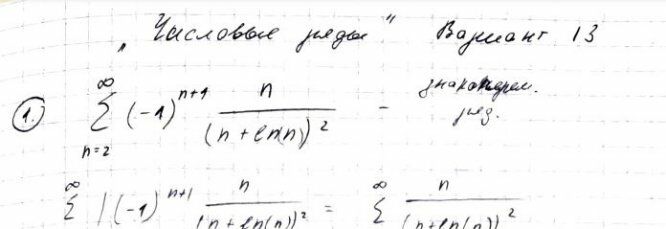 „Числовые ряды“ Вариант 13
1. ∑_{n=2}^{∞} (-1)^{n+1} n/(n+ln(n))^2 - знакоперем. ряд.
∑^{∞} |(-1)^{n+1} n/(n+ln(n))^2 = ∑^{∞} n/(n+ln(n))^2